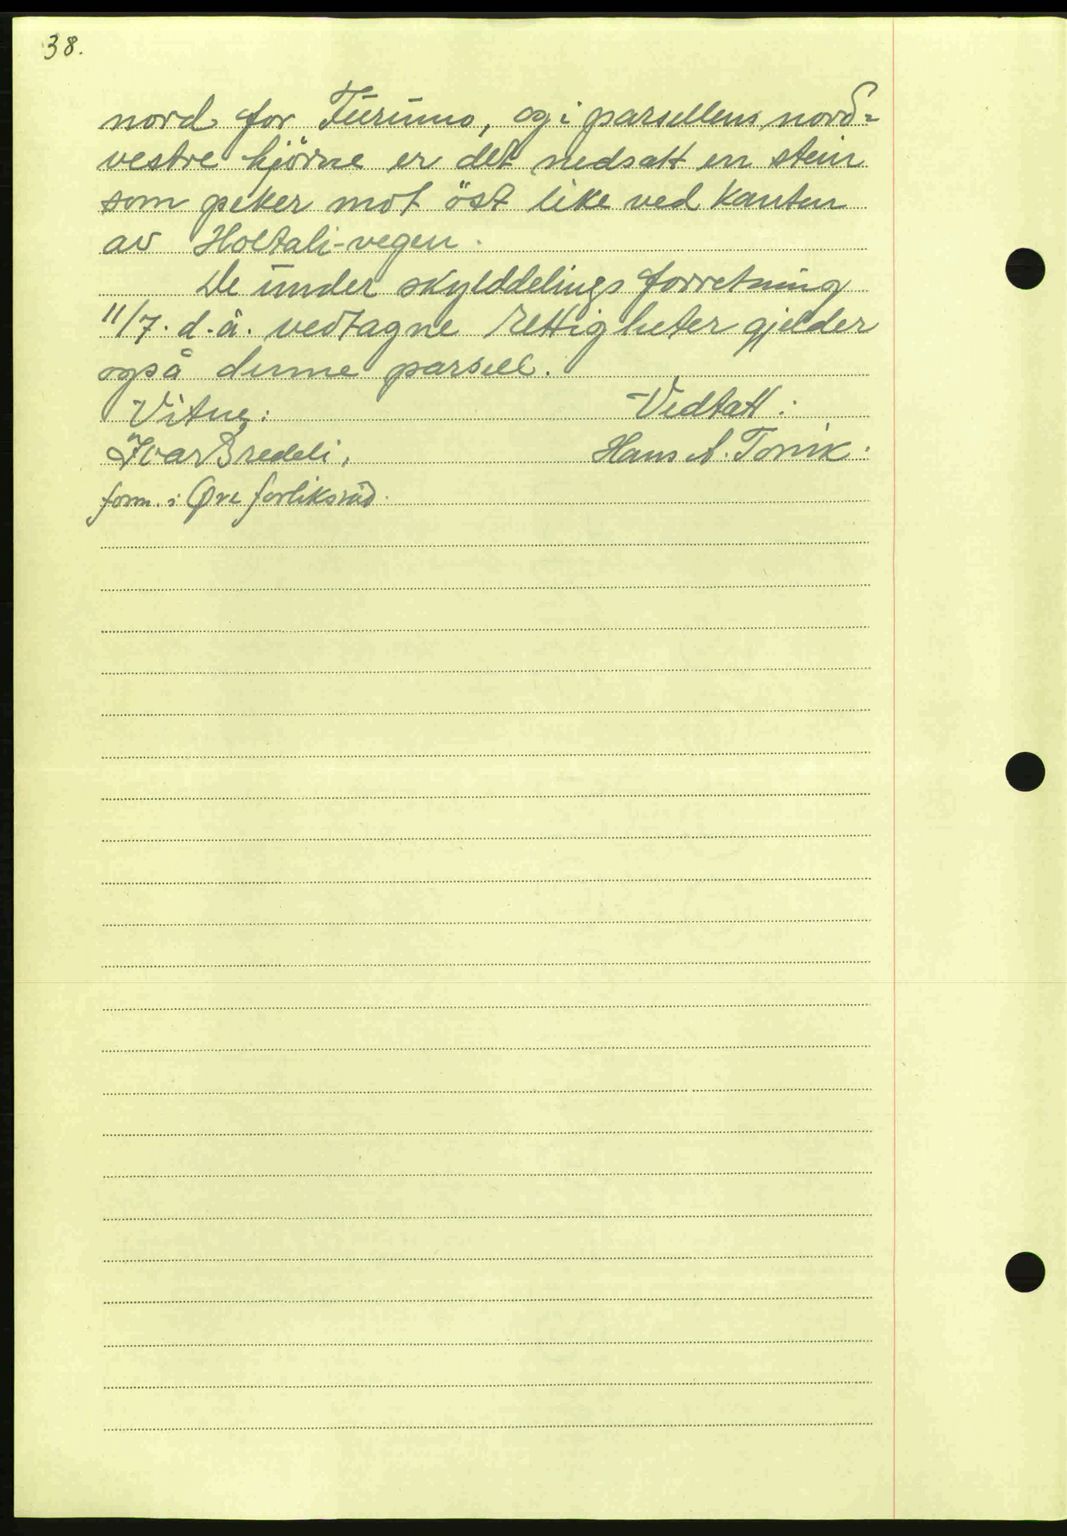 38.
nord for Furumo, og i parsellens nord=
vestre hjörne er det nedsatt en stein
som peker mot öst like ved kanten
av Holtali-vegen.
De under skylddelings forretning
11/7. d.å. vedtagne rettigheter gjelder
også denne parsell.
Vitne: Vedtatt:
Ivar Bredeli. Hans A. Torvik.
form. i Øre forliksråd.